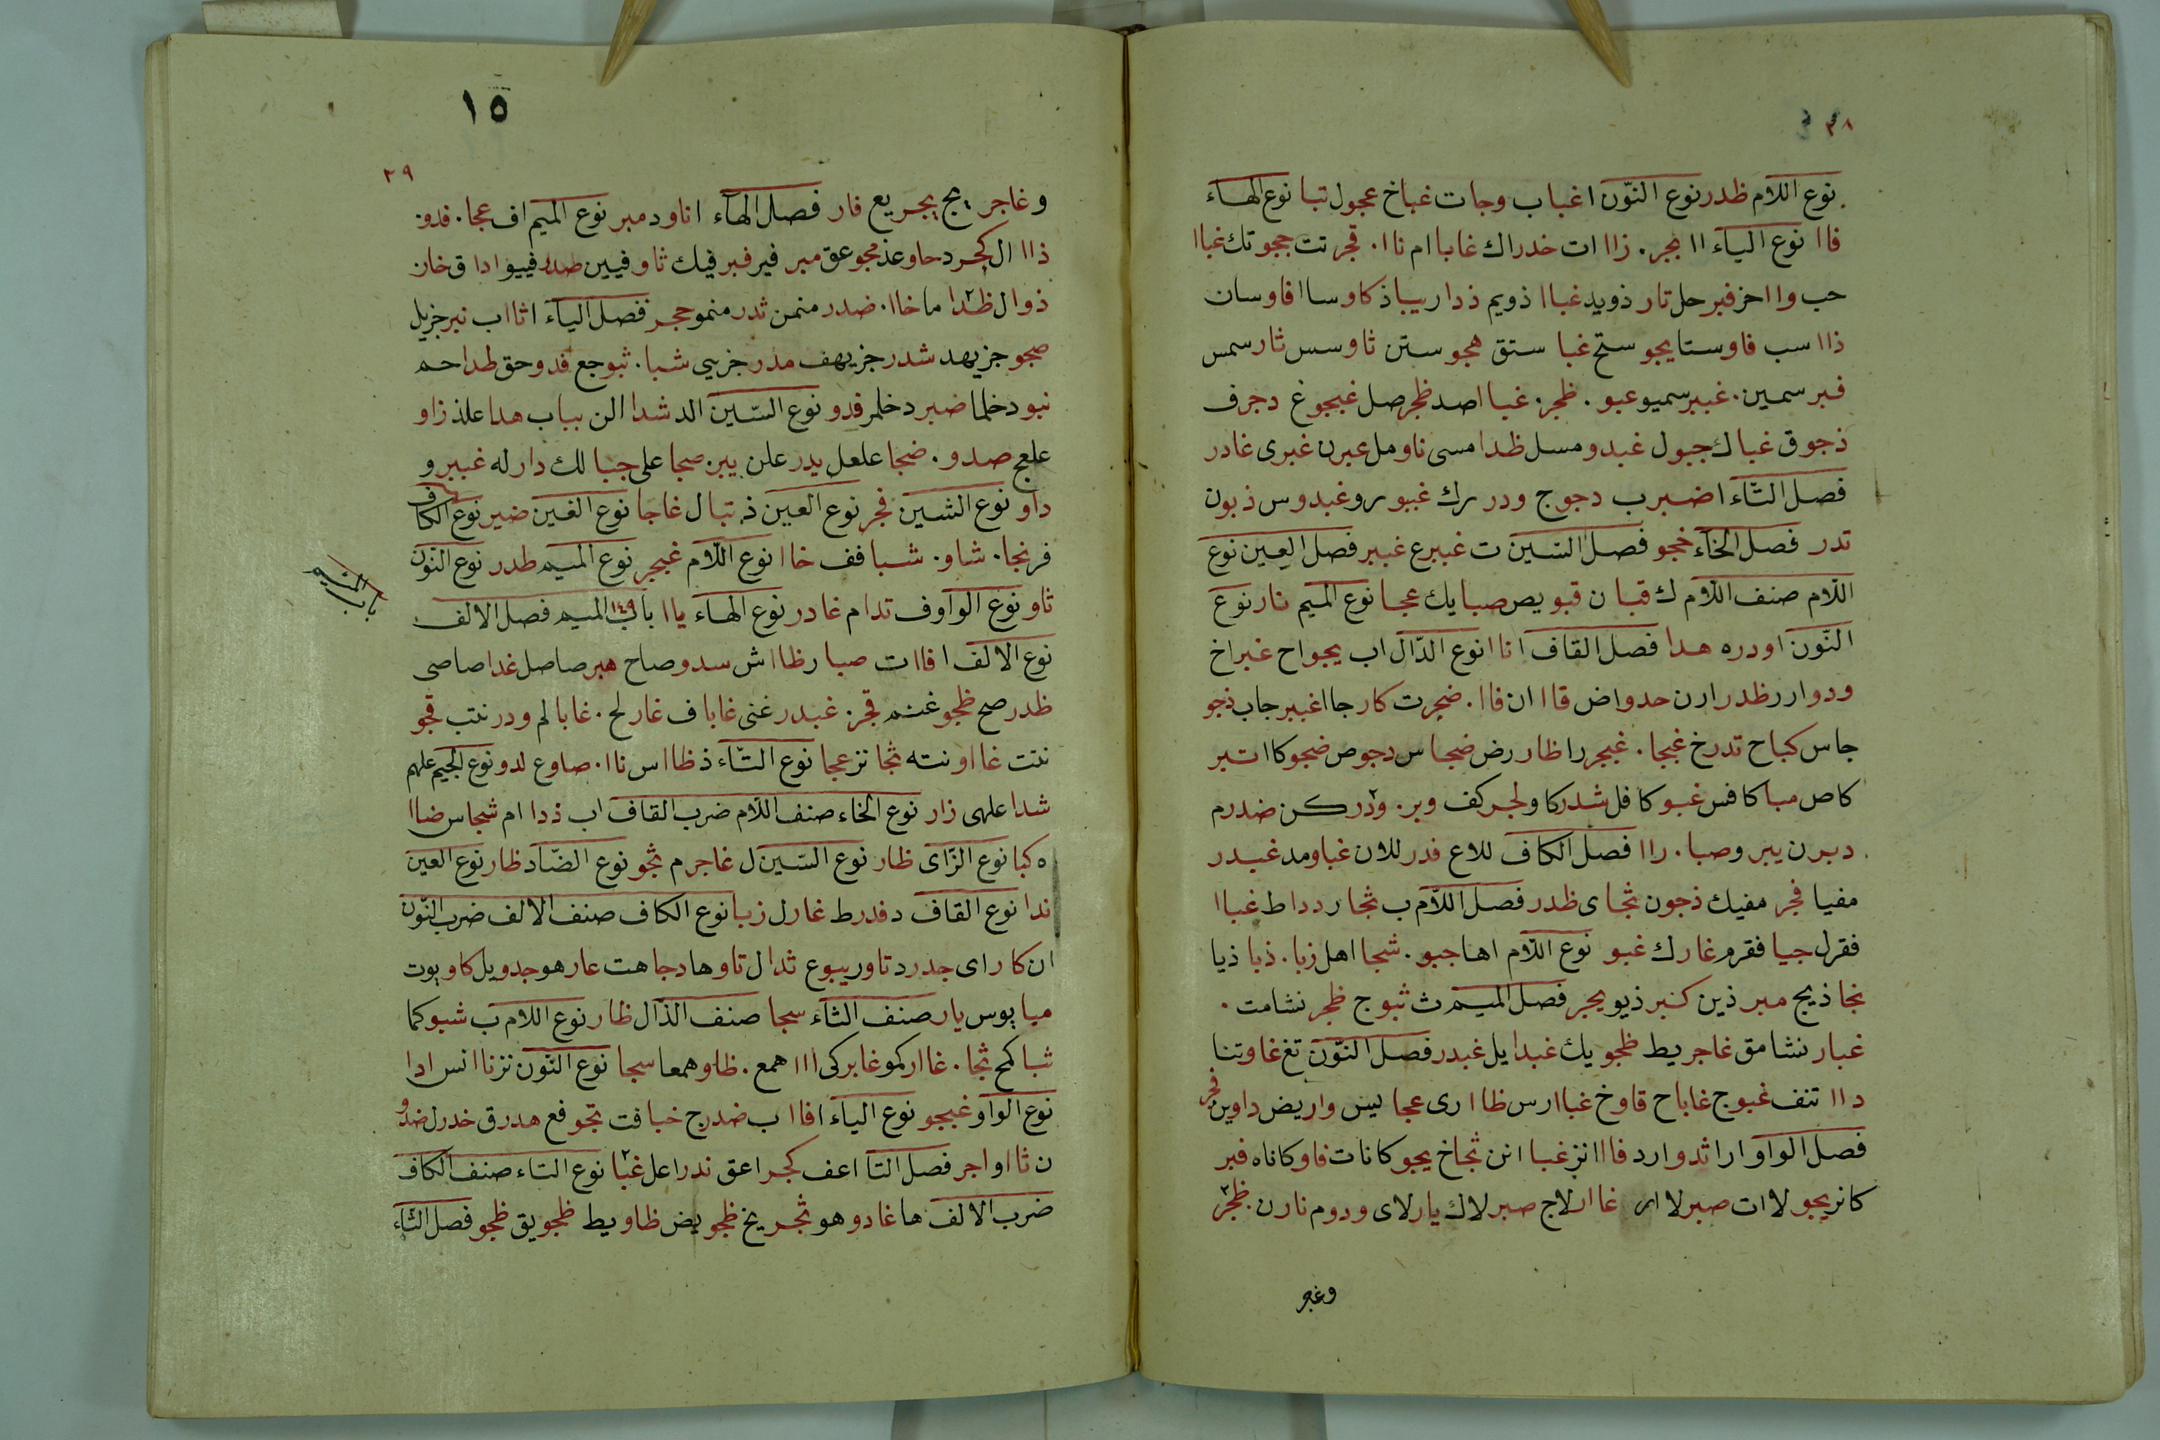 ٢٨
نوع اللام ظدر نوع النّون اغباب وجات غباخ عجول تبا نوع الهاء
فاا نوع الياء اا مجر. زاا ات خدر اك غابا ام ناا. قجر تت ججو تك غباا
حب واا حز فبر حل تار ذويد غباا ذويم ذدار يباذ كاوساا فاوسان
ذاا سب فاوستا يجو ستح غبا ستق هجو ستن ثاو سس ثار سمس
فبر سمين. غببر سميو عبو. ظجر. غباا صد ظجر صل غبجوغ دجرف
ذجوق غباك جبول غبدو مسل ظدا مسى ناو مل عبرن غبرى غادر
فصل التّاء اضبرب دجوج ودر رك غببو رو غبدوس ذبون
تدر فصل الخاء خجو فصل السّين ت غبيرع غببر فصل العين نوع
اللّام صنف اللّام ك قبا ن قبويص صبا يك عجا نوع الميم نار نوع
النّون اودره هدا فصل القاف انا انوع الدّال اب يجواح غبراخ
ودوار ر ظدر ارن حدواض قاا ان فاا. ضجرت كار جا اغببر جاب ذجو
جاس كباح تدرخ غبجا. غبجر را ظار رض ضجاس دجوص ضجو كاا تبر
كاص مبا كافس غبو كافل شدر كاو لجر كف وبر. ودر كن ضدرم
دبرن يبر وصبا. راا فصل الكاف للاع فدر للان غباومد غبدر
مفيا فجر مفيك ذجون ثجاى ظدر فصل اللّام ب ثجار رداط غباا
فقرل جيا فقرم غارك غبو نوع اللّام اهاجبو. شجا اهل زبا. ذبا ذيا
نجا ذيج مبر ذين كنبر ذيو يجر فصل الميم ث ثبوج ظجر نشامت.
غبار نشامق غاجر يط ظجو يك غبدا يل غبدر فصل النّون تغ غاوتنا
داا تنف غبوج غاباح قاوخ غباارس ظاا رى عجا ليس واريض داوين فجر
فصل الواو ارا ثدوارد فاا انز غبا انن ثجاخ يجو كانات فاو كاناه فبر
كانر يجو لاات صبر لاار غاا رلاج صبر لاك يار لاى ودوم نارن. ظجر
وغجر
١٥
٢٩
وغاجر يج يجر يع فار فصل الهاء اناود مبر نوع الميم اف عجا. فدوز
ذاا ال كجر دحاو عذ مجو عق مبر فير فبر فيك ثاو فيين صدر فييو اداق خان
ذوال ظدا ما خاا. ضدر منمن ثدر منمو حجر فصل الياء اثااب نبر جزيل
صجو جزيهد شدر جزيهف مدر جزيى شبا. ثبوجع فدو حق طدا حم
نبو دخلما ضبر دخلمر قدو نوع السّين الد شدا الن بباب هدا علذ زاو
علعج صدو. ضجا علعل يدر علن يبن صجا على جبا لك دار له غببرو
داو نوع الشين فجر نوع العين ذ. تبال غاجا نوع الغين ضير نوع الكاف
فر نجا. شاو. شبا فف خاا نوع اللّام غبجر نوع الميم طدر نوع النّون
ثاو نوع الواو ف تدام غادر نوع الهاء ياا باب الميم فصل الالف
باب الميم
نوع الالف افاات صبار ظااش سدو صاح هبر صاصل غدا صاصى
ظدر صح ظجو غنم قجر. غبدر غنى غاباف غار لح. غابا لم ودر نتب قجو
نتت غاا ونته ثجا نز عجا نوع التّاء ذ ظااس ناا. صاوع لدو نوع الجيم علهم
شدا علهى زار نوع الخاء صنف اللّام ضرب القاف اب ذدا ام شجاس ضاا
ه كبا نوع الزّاى ظار نوع السّين ل غاجرم ثجو نوع الضّاد ظار نوع العين
ندا نوع القاف د فدرط غارل زبا نوع الكاف صنف الالف ضرب النّون
ان كاراى جدرد تاور يبوع ثدال تاوها دجاهت عار هو جدويل كاويوت
مبا يوس يار صنف الثّاء سجا صنف الذّال ظار نوع اللام ب شبوكما
شبا كمح ثجا. غاار كمو غابر كى ااا همع. ظاو همعا سجا نوع النّون نز ناا نس ادا
نوع الواو غبجو نوع الياء افاا ب ضدرج خبافت تجو فع هدرق خدرل ضدو
ن ثااو اجر فصل التّا اعف كجر اعق ندر اعل غبا نوع التاء صنف الكاف
ضرب الالف ها غادو هو ثجر يخ ظجو يض ظاو يط ظجو يق ظجو فصل الثّاء